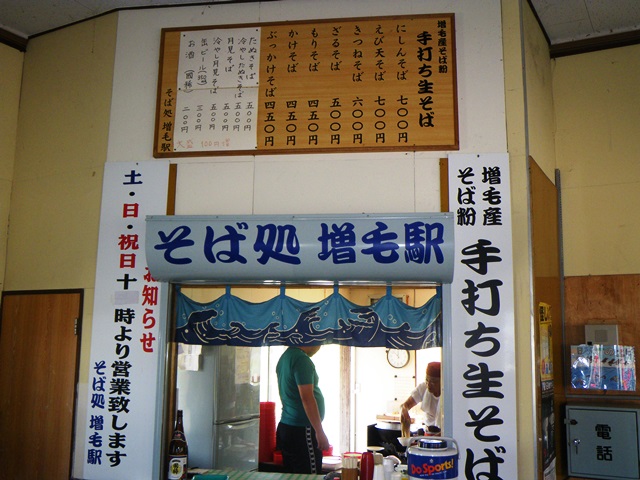 増毛産そば粉
手打ち生そば
にしんそば 七〇〇円
えび天そば 七〇〇円
きつねそば 六〇〇円
ざるそば 五〇〇円
もりそば 四五〇円
かけそば 四五〇円
ぶっかけそば 四五〇円
たぬきそば 五〇〇円
冷やしたぬきそば 五五〇円
月見そば 五〇〇円
冷やし月見そば 五五〇円
缶ビール 三〇〇円
お酒(國稀) 二〇〇円
そば処 増毛駅
そば処 増毛駅
増毛産
そば粉
手打ち生そば
お知らせ
土・日・祝日十
時より営業致します
そば処 増毛駅
Do Sports!
電話